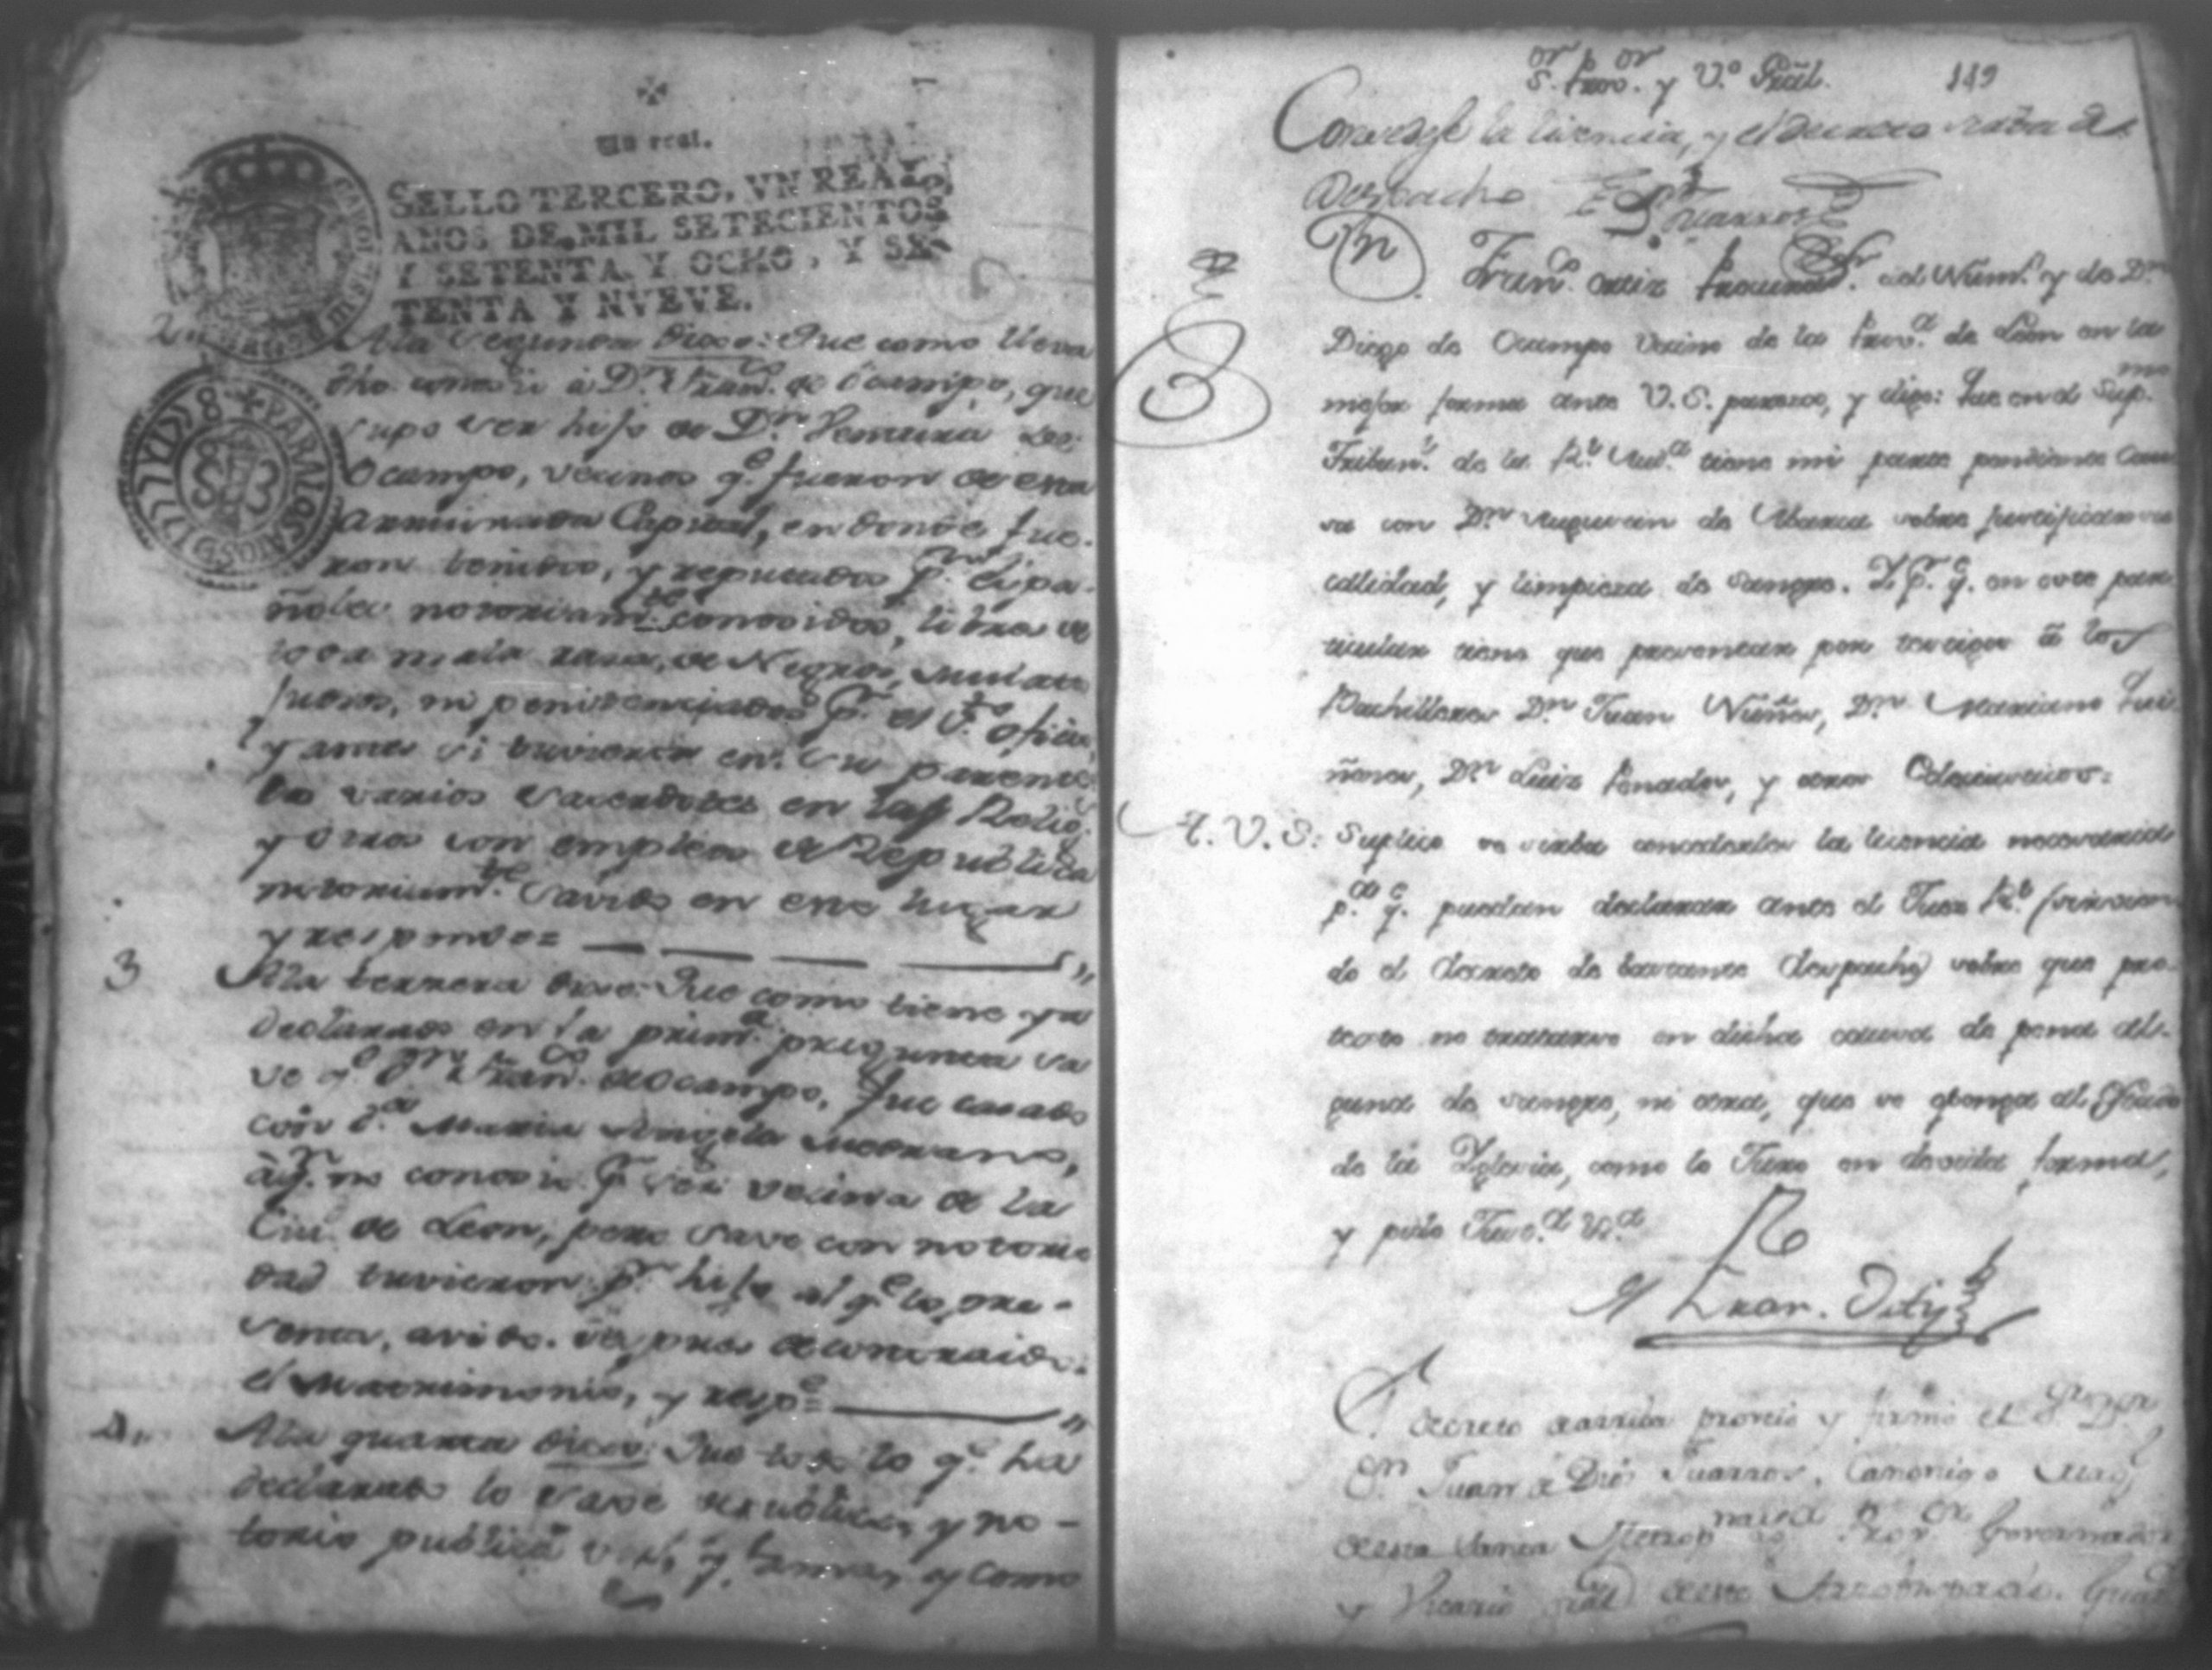 Un real.
SELLO TERCERO, VN REAL,
AÑOS DE MIL SETECIENTOS
Y SETENTA, Y OCHO, Y SE-
TENTA Y NVEVE.
PARA LOS AÑOS DE 1777 Y 1778
A la segunda dixo: Que como lleva
dho conocio a Dn. Franco. de Ocampo, que
supo ser hijo de Dn. Ventura de
Ocampo, vecinos qe. fueron de esta
arruinada Capital, en donde fue-
ron tenidos, y reputados pr. Espa-
ñoles notoriamte. conocidos, libres de
toda mala raza, de Negros, Mulatos
Judios, ni penitenciados pr. el Sto. oficio,
y antes si tuvieron en su parente-
la varios Sacerdotes en las Relig.
y otros con empleos de Republica
notoriamte. Savido en este lugar
y responde=
3 A la tercera dixo: Que como tiene ya
declarado en la prima. pregunta sa-
ve qe. Dn. Franco. de Ocampo, fue casado
con Da. Maria Angela Medrano,
à qn. no conocio pr. ser vecina de la
Ciud. de Leon, pero save con notorie-
dad tuvieron pr. hijo al qe. lo pre-
senta, avido despues de contraido
el Matrimonio, y respe.=
4 A la quarta dixo: Que todo lo qe. ha
declarado lo save de publico, y no-
torio publica voz, y fama, y como
Sor. Provor. y Vo. Gral. 119
Concedese la licencia, y el decreto sirva de
despacho Dr. Juarros
Franco. Ortiz Procurador del Numo. y de Dn.
Diego de Ocampo Vecino de la Prova. de Leon en la
mejor forma ante V.S. paresco, y digo: Que en el Supmo.
Tribunl. de la Rl. Auda. tiene mi parte pendiente Cau-
sa con Dn. Agustin de Abarca sobre justificar su
calidad, y limpieza de sangre. Y pr. q. en este par-
ticular tiene que presentar por testigos à los
Bachilleres Dn. Juan Nuñes, Dn. Mariano Qui-
ñones, Dn. Luis Penados, y otros Eclesiasticos=
A. V. S. Suplico se sirba concederles la licencia necesaria
pa. q. puedan declarar ante el Juez Rl. (sirvien-
do el decreto de bastante despacho) sobre que pro-
texto no tratarse en dicha causa de pena al-
guna de sangre, ni otra, que se oponga al Estado
de la Yglesia, como lo Juro en devida forma,
y pido Justa. &a.
Fran. Ortiz
El decreto de arriba proveió y firmó el Sor. Dor.
Dn. Juan de Dios Juarros, Canonigo Mag.
de esta Santa Metropna. Provor. Governador
y Vicario gral de este Arzobispado. Guat